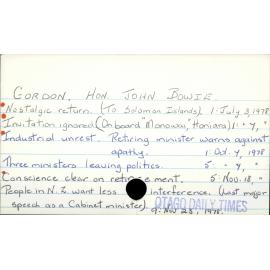 GORDON, HON. JOHN BOWIE.
Nostalgic return. (To Solomon Islands) 1: July 3, 1978
Invitation ignored (On board "Monowai", Honiara) 1: " 7, "
Industrial unrest. Retiring minister warns against
apathy. 1: Oct. 4, 1978
Three ministers leaving politics. 5: " 7, "
Conscience clear on retirement. 5: Nov. 18, "
People in N.Z. want less interference. (Last major
speech as a Cabinet minister) OTAGO DAILY TIMES
9: Nov 23, 1978.